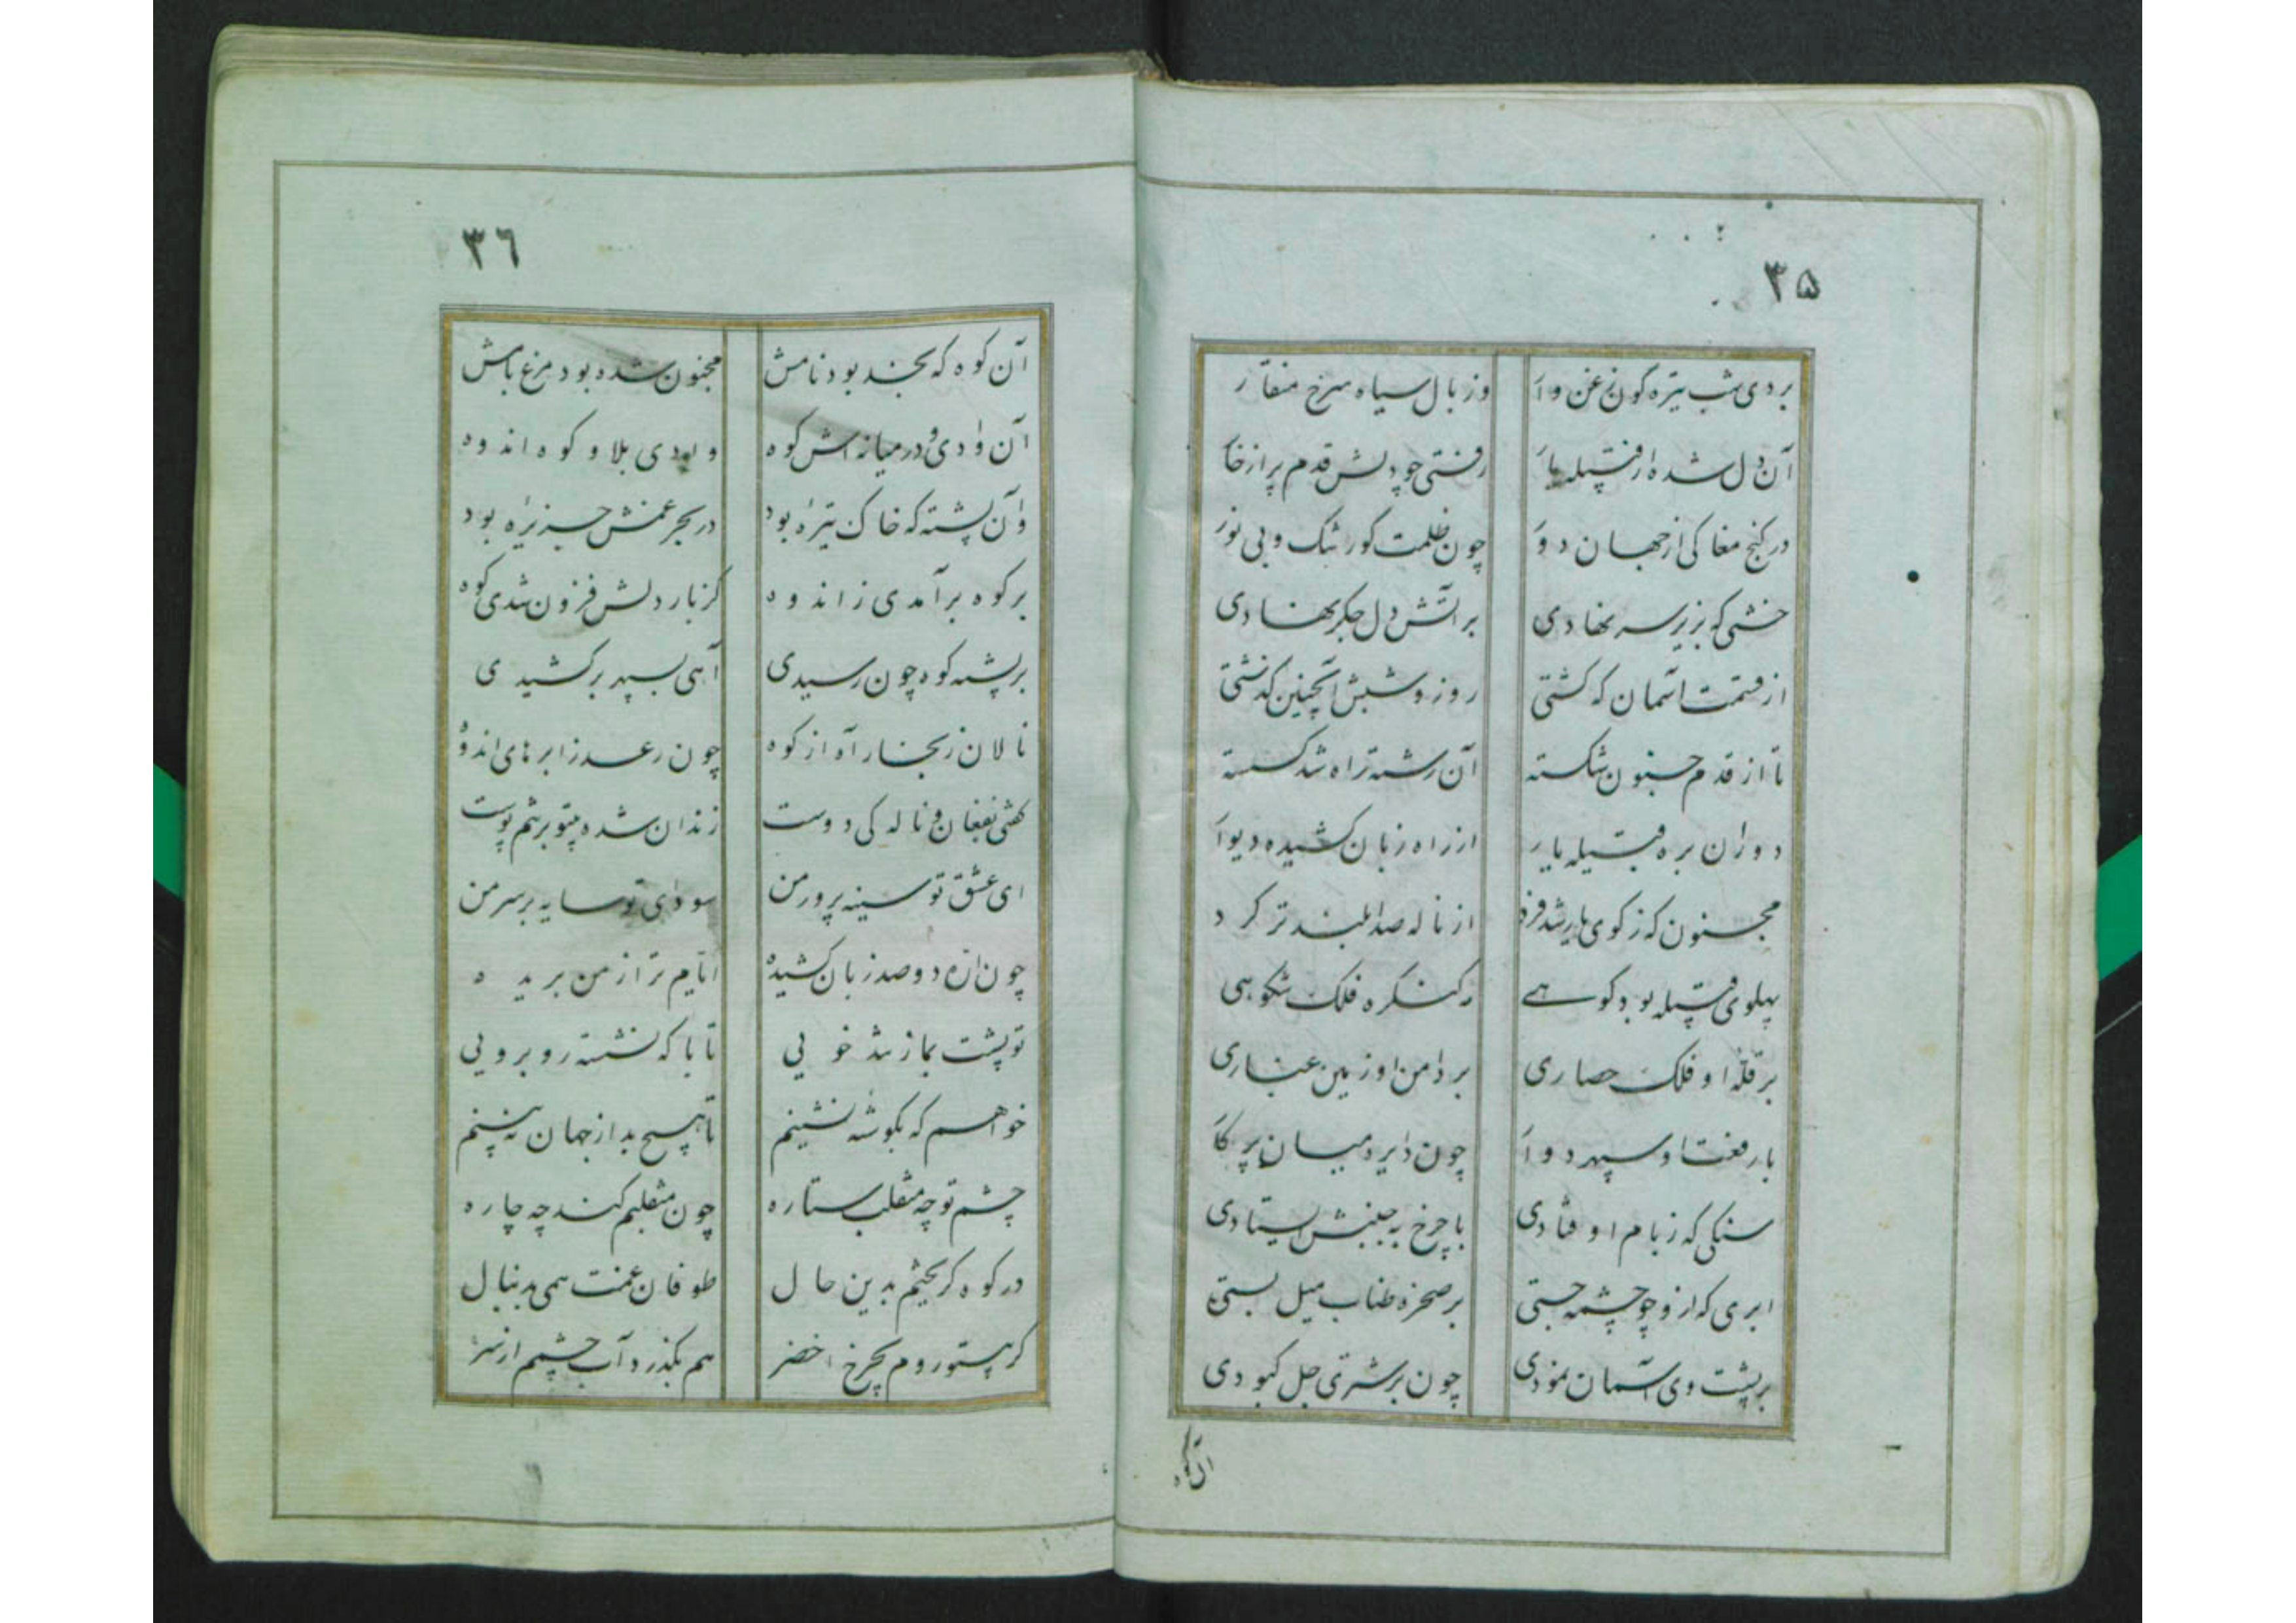 ۳۵
بردی شب تیره گون زغن وار وز بال سیاه سرخ منقار
آن دل شده از قبیله یار رفتی چو دلش قدم پر از خار
در کنج مغاکی از جهان دور چون ظلمت گور تنگ و بی نور
خشتی که بزیر سر نهادی بر آتش دل جگر نهادی
از قسمت آسمان که گشتی روز و شبش اینچنین گذشتی
تا از قدم جنون شکسته آن رشته راه شد گسسته
دوران بره قبیله یار از راه زبان کشیده دیوار
مجنون که ز کوی یار شد فرد از ناله صدا بلندتر کرد
پهلوی قبیله بود کوهی کنگره فلک شکوهی
بر قله او فلک حصاری بر دامن او زمین غباری
با رفعت او سپهر دوار چون دایره میان پرگار
سنگی که ز بام او فتادی با چرخ به جنبش ایستادی
ابری که از و چو چشمه جستی بر صخره طناب میل بستی
بر پشت وی آسمان نمودی چون بر شتری جل کبودی
آن کوه
۳۶
آن کوه که نجد بود نامش مجنون شده بود مرغ بامش
آن وادی و در میانه اش کوه وادی بلا و کوه اندوه
وآن پشته که خاک تیره بود در بحر غمش جزیره بود
بر کوه برآمدی ز اندوه کز بار دلش فزون شدی کوه
بر پشته کوه چون رسیدی آهی بسپهر برکشیدی
نالان ز بخار آه از کوه چون رعد ز ابرهای اندوه
گفتی بفغان و ناله کی دوست زندان شده بیتو بر تنم پوست
ای عشق تو سینه پرور من سودای تو سایه بر سر من
چون اره دو صد زبان کشیده ایام ترا از من بریده
تو پشت بما ز تند خویی تا با که نشسته روبرویی
خواهم که بگوشه نشینم تا هیچ بد از جهان نه بینم
چشم تو چه مقلب ستاره چون منقلبم کند چه چاره
در کوه گریختم بدین حال طوفان غمت همی بدنبال
گر بیتو روم بچرخ اخضر هم بگذرد آب چشم از سر